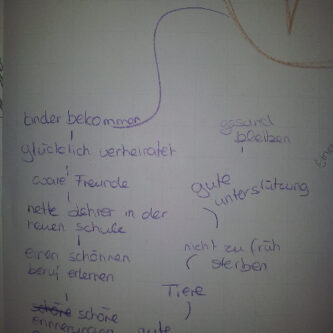 kinder bekommen
glücklich verheiratet
ware Freunde
nette Lehrer in der
neuen schule
einen schönnen
beruf erlernen
schöne schöne
erinnerungen gute
gesund
bleiben
gute
unterstützung
nicht zu früh
sterben
Tiere